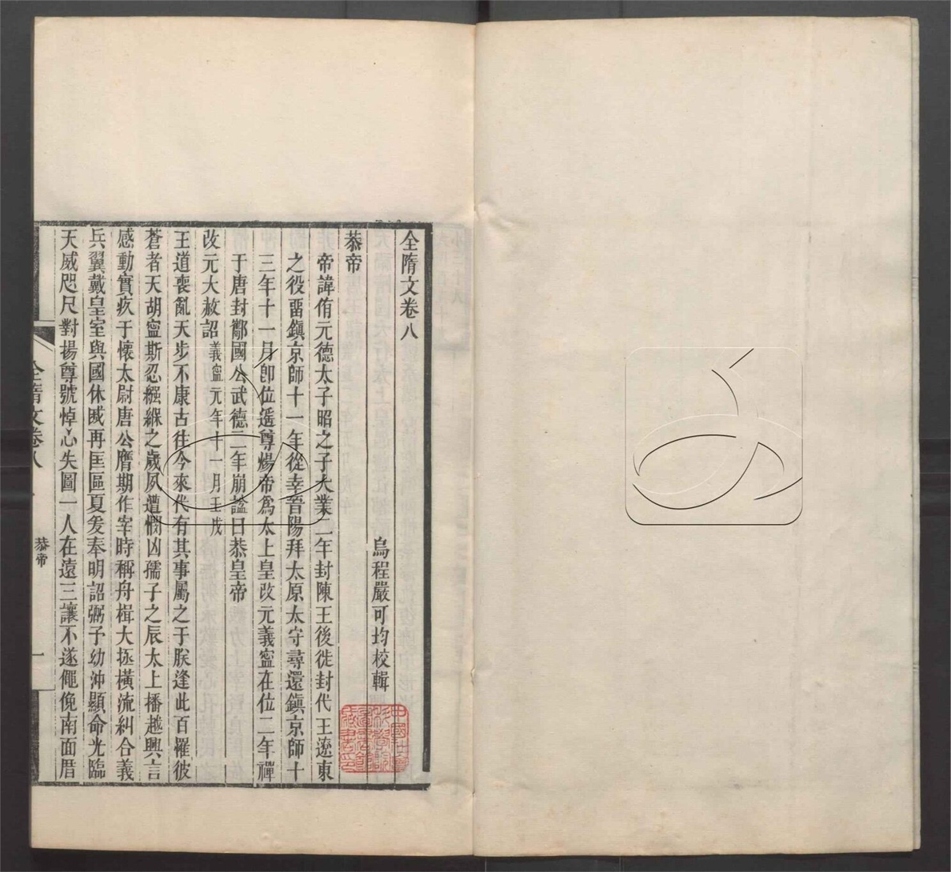 全隋文卷八
烏程嚴可均校輯
恭帝
帝諱侑元德太子昭之子大業二年封陳王後徙封代王遼東
之役畱鎭京師十一年從幸晉陽拜太原太守尋還鎭京師十
三年十一月卽位遥尊煬帝爲太上皇改元義寧在位二年禪
于唐封酅國公武德二年崩諡曰恭皇帝
改元大赦詔 義寧元年十一月壬戌
王道喪亂天步不康古往今來代有其事屬之于朕逢此百罹彼
蒼者天胡寧斯忍繈緥之歲夙遭憫凶孺子之辰太上播越興言
感動實疚于懷太尉唐公膺期作宰時稱舟楫大拯橫流糾合義
兵翼戴皇室與國休戚再匡區夏爰奉明詔弼予幼沖顯命光臨
天威咫尺對揚尊號悼心失圖一人在遠三讓不遂僶俛南面厝
全隋文卷八
恭帝
一